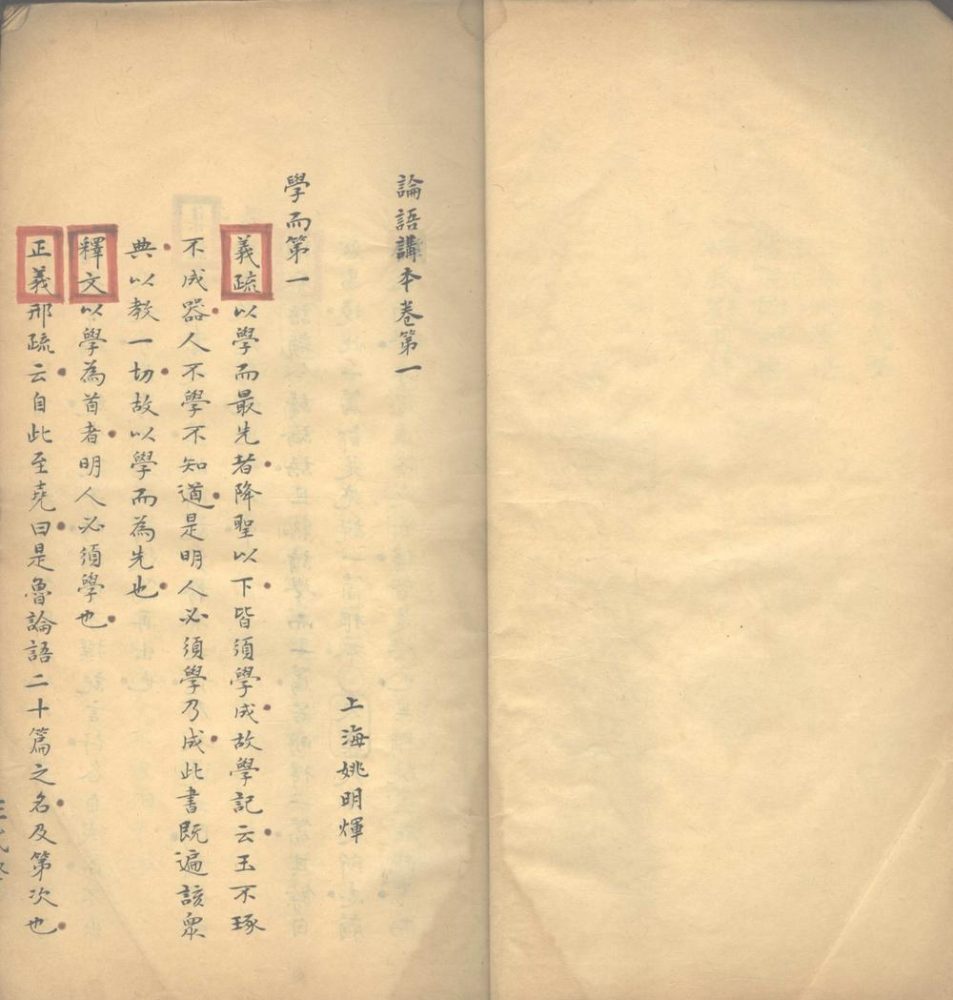 論語講本卷第一
上海姚明煇
學而第一
義疏以學而最先者降聖以下皆須學成故學記云玉不琢
不成器人不學不知道是明人必須學乃成此書既遍該衆
典以教一切故以學而為先也
釋文以學為首者明人必須學也
正義邢疏云自此至堯曰是魯論語二十篇之名及第次也